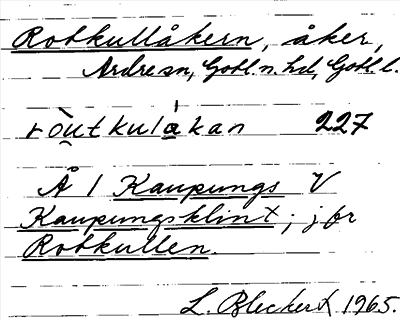 Rotkullåkern, åker,
Ardre sn, Gotl. n. hd, Gotl. l.
ròutkulakan 227
Å / Kaupungs V
Kaupungsklint; jfr
Rotkullen.
L. Bleckert 1965.